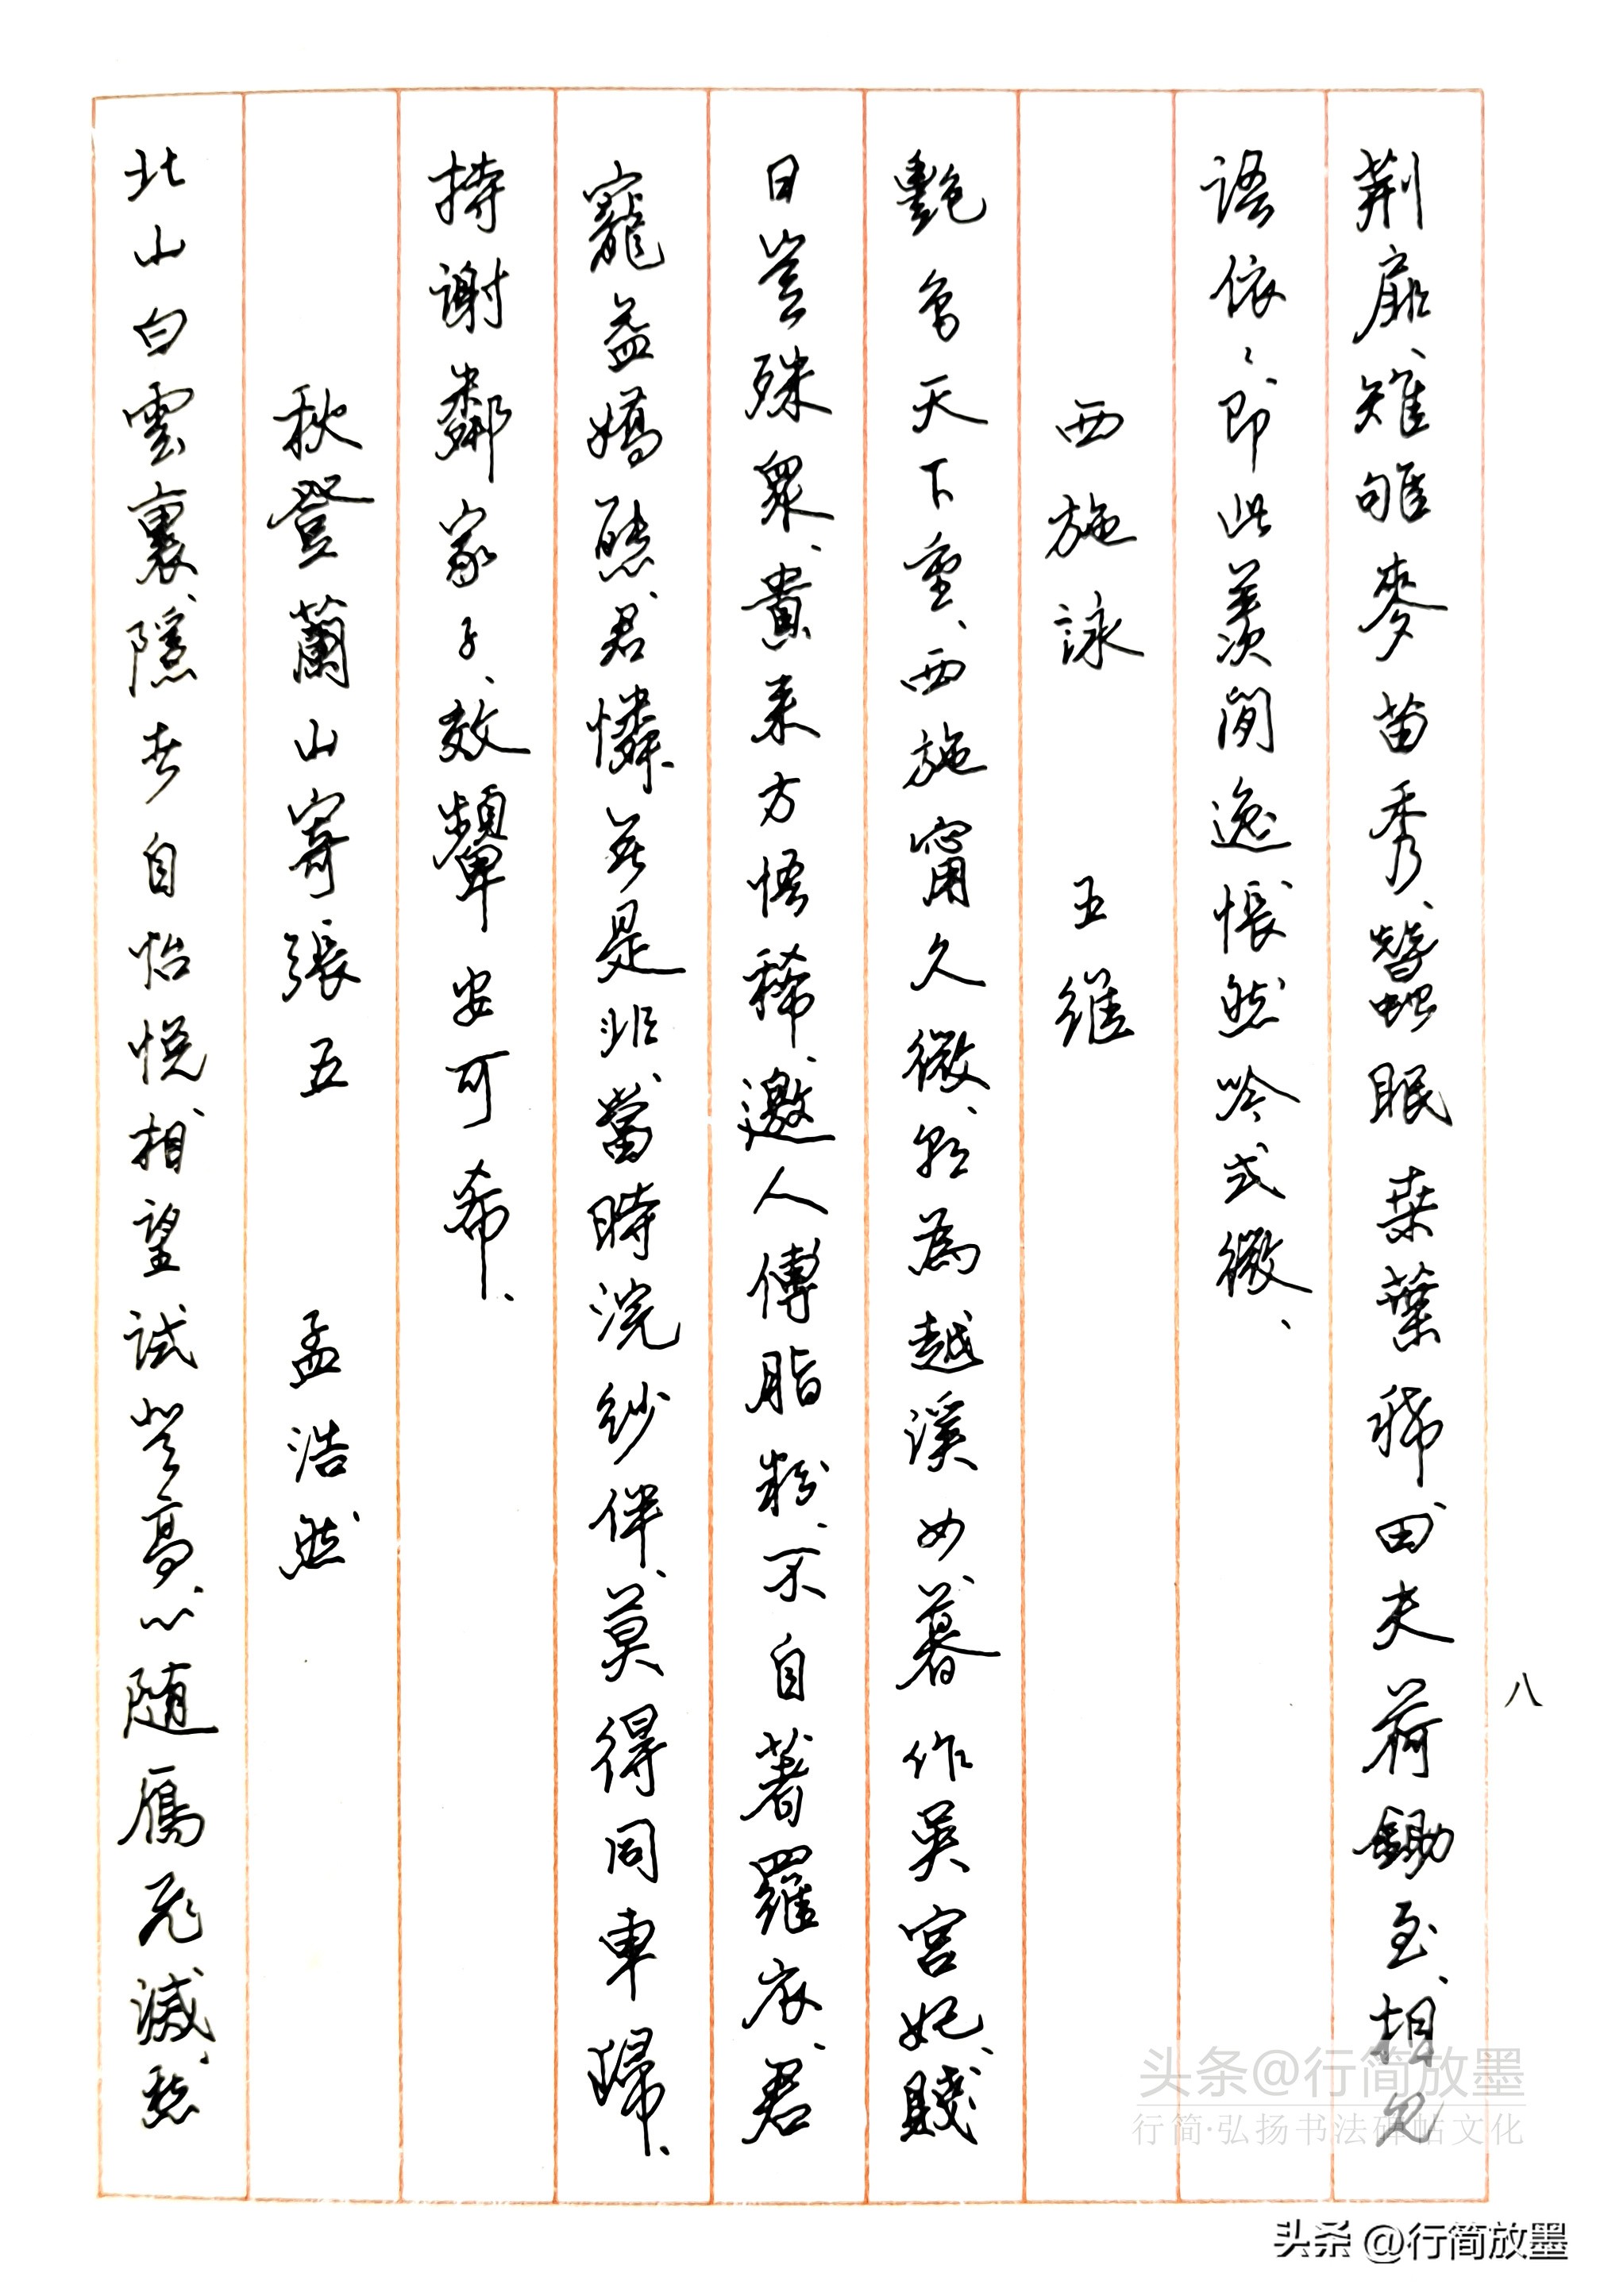 荆扉、雉雊麥苗秀、蠶眠桑葉稀田夫荷鋤至、相見
語依、、即此羨閑逸悵然吟式微、
西施詠 王維
艷色天下重、西施甯久微、朝為越溪女暮作吳宮妃、賤
日豈殊眾、貴來方悟稀、邀人傅脂粉、不自著羅衣、君
寵益嬌態、君憐無是非、當時浣紗伴、莫得同車歸、
持謝鄰家子、效顰安可希、
秋登蘭山寄張五 孟浩然
北山白雲裏、隱者自怡悅相望試登高、心隨雁飛滅、愁
八
头条@行简放墨
行简·弘扬书法碑帖文化
头条 @行简放墨